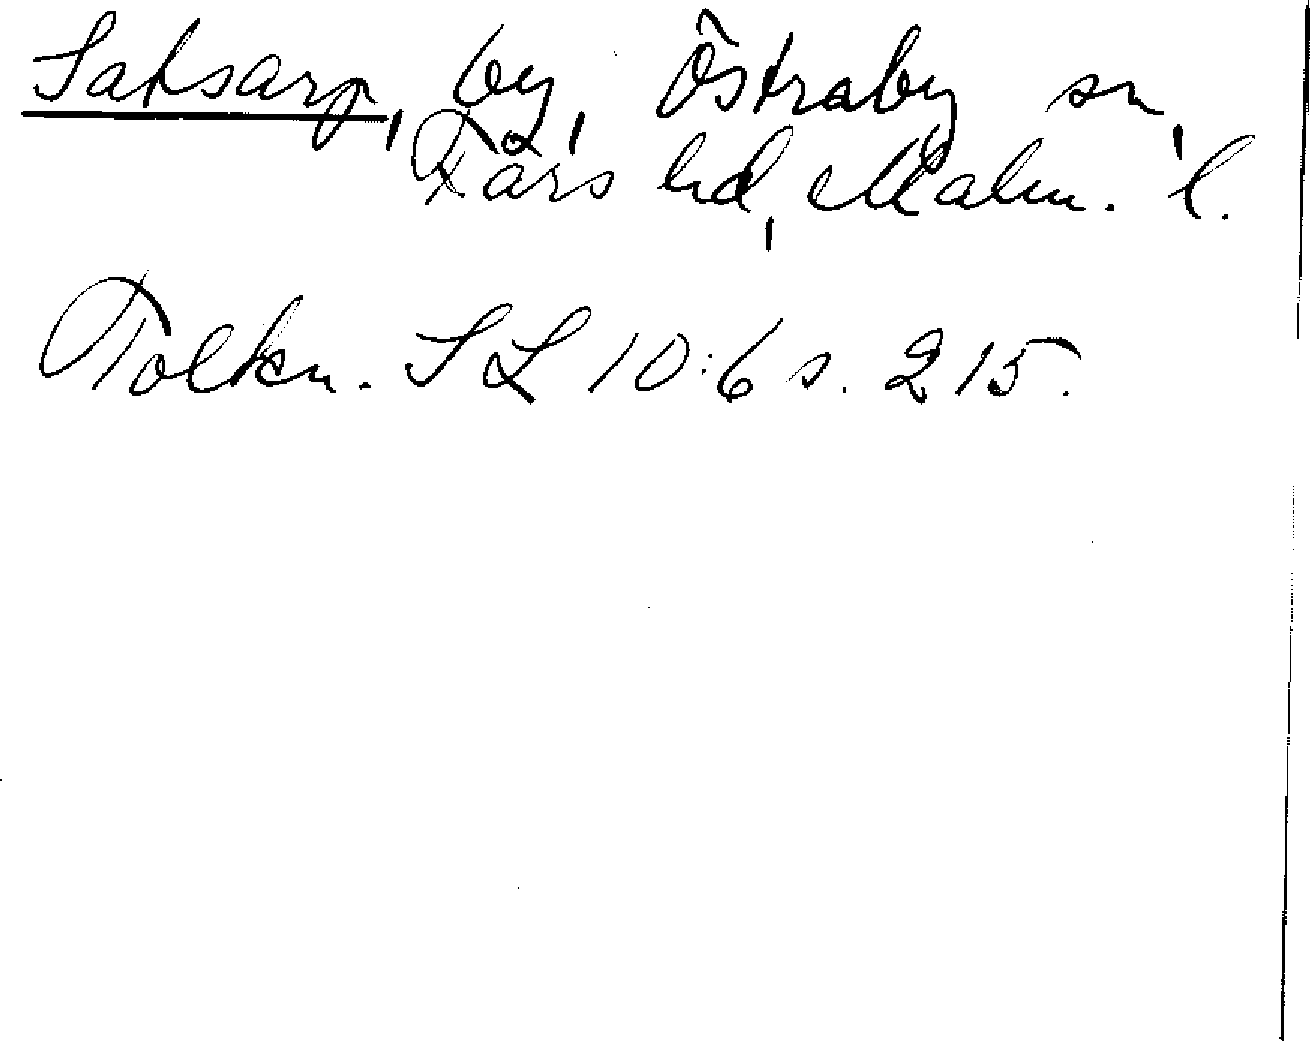 Saksarp, by, Östraby sn,
Färs hd, Malm. l.
Tolkn. SL 10:6 s. 215.